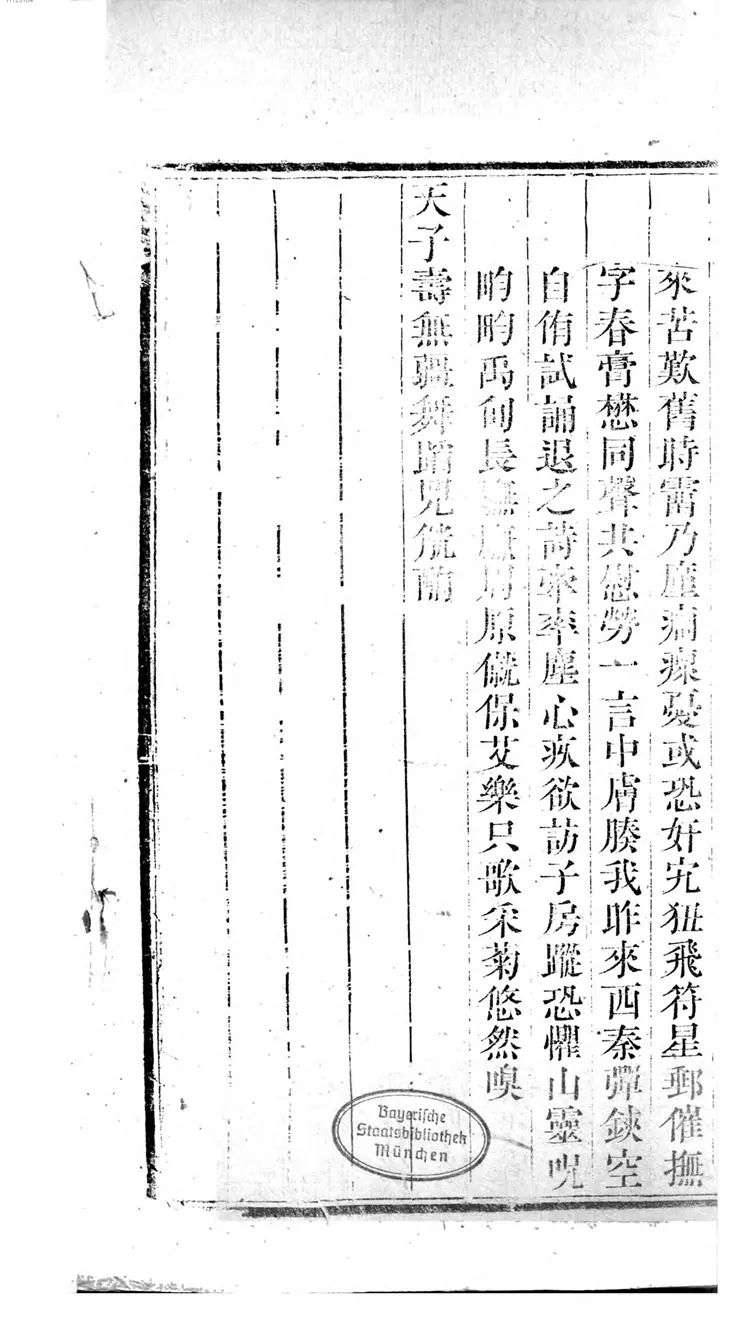 來苦歎舊時雷乃廑痌瘝憂或恐奸宄狃飛符星郵催撫
字春膏懋同聲共慰勞一言中膚腠我昨來西秦彈鋏空
自侑試誦退之詩牽率塵心疚欲訪子房蹤恐懼山靈呪
畇畇禹甸長周原儼保艾樂只歌采菊悠然嗅
天子壽無疆舞蹈兕觥酧
Bayerische
Staatsbibliothek
München